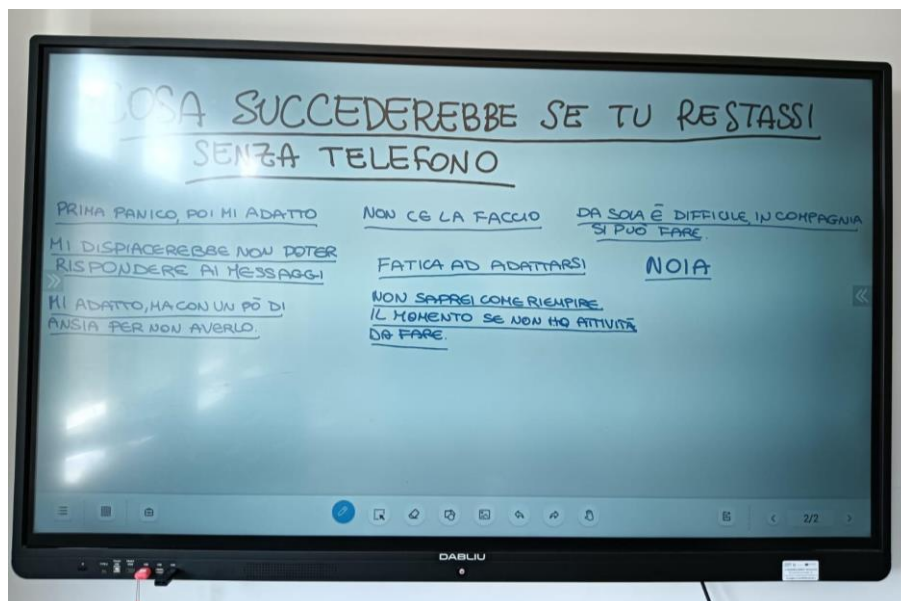 COSA SUCCEDEREBBE SE TU RESTASSI
SENZA TELEFONO
PRIMA PANICO, POI MI ADATTO
MI DISPIACEREBBE NON POTER
RISPONDERE AI MESSAGGI
MI ADATTO, MA CON UN PÒ DI
ANSIA PER NON AVERLO.
NON CE LA FACCIO
FATICA AD ADATTARSI
NON SAPREI COME RIEMPIRE
IL MOMENTO SE NON HO ATTIVITÀ
DA FARE.
DA SOLA È DIFFICILE, IN COMPAGNIA
SI PUÒ FARE.
NOIA
2/2
DABLIU